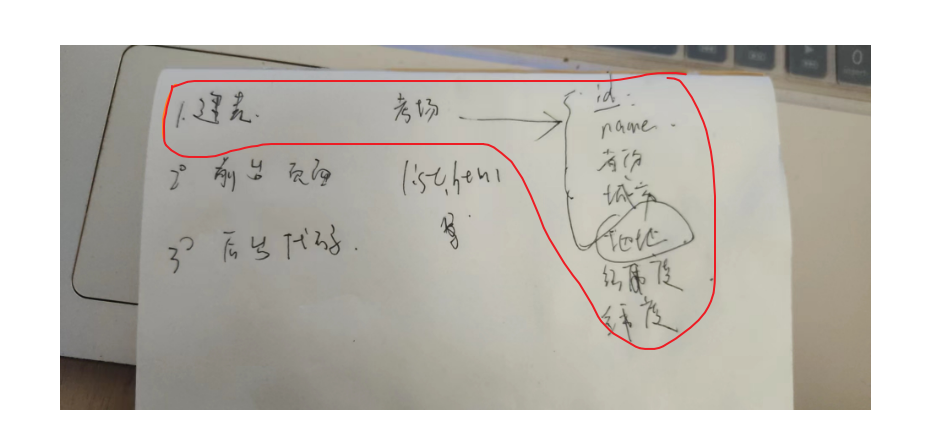 1. 建表. 考场
id.
name.
省份
城市
地址
经度
纬度
2° 前台页面 list.html
3° 后台代码.